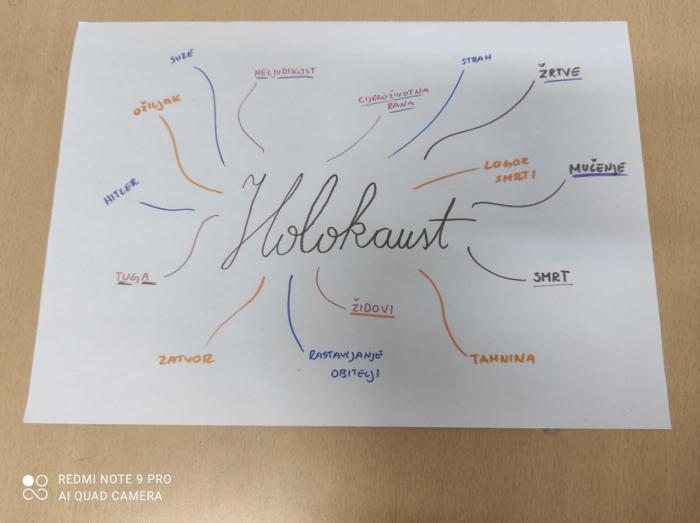 SUZE
NELJUDSKOST
STRAH
ŽRTVE
OŽILJAK
CIJELOŽIVOTNA
RANA
LOGOR
SMRTI
MUČENJE
HITLER
Holokaust
TUGA
SMRT
ŽIDOVI
ZATVOR
RASTAVLJANJE
OBITELJI
TAMNINA
REDMI NOTE 9 PRO
AI QUAD CAMERA